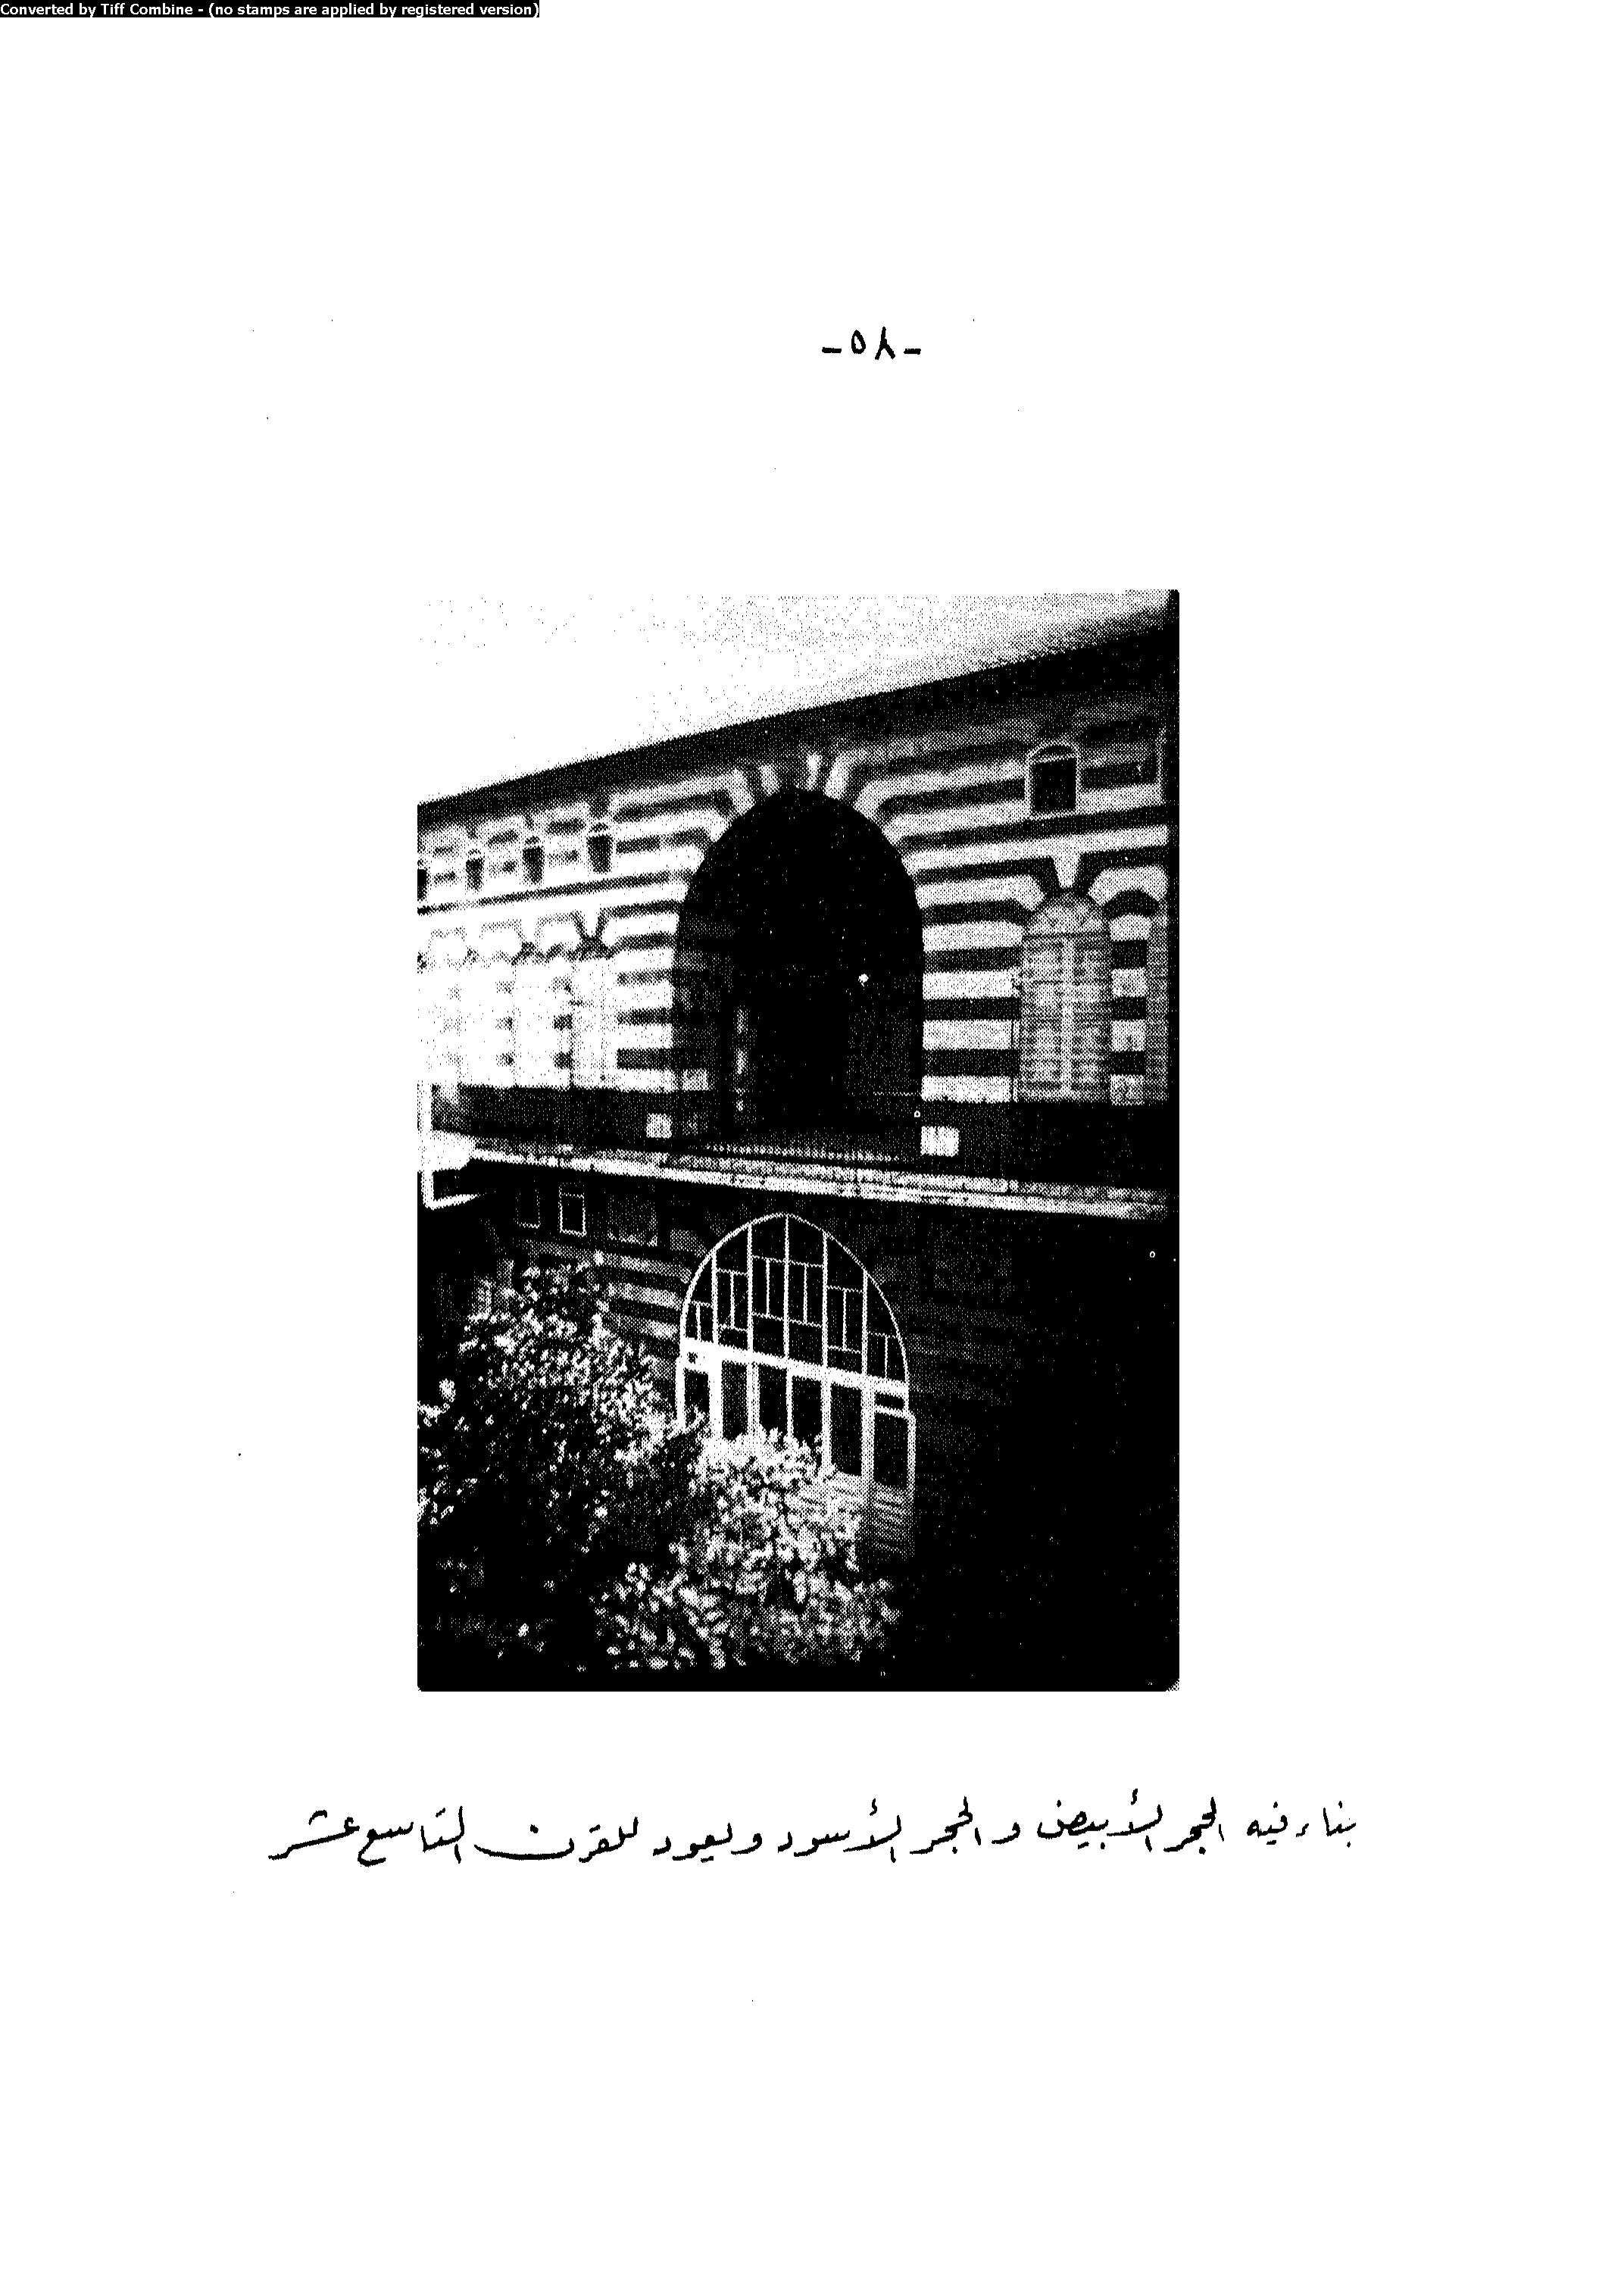 Converted by Tiff Combine - (no stamps are applied by registered version)
-٥٨-
بناء فيه الحجر الأبيض والحجر الأسود ويعود للقرن التاسع عشر